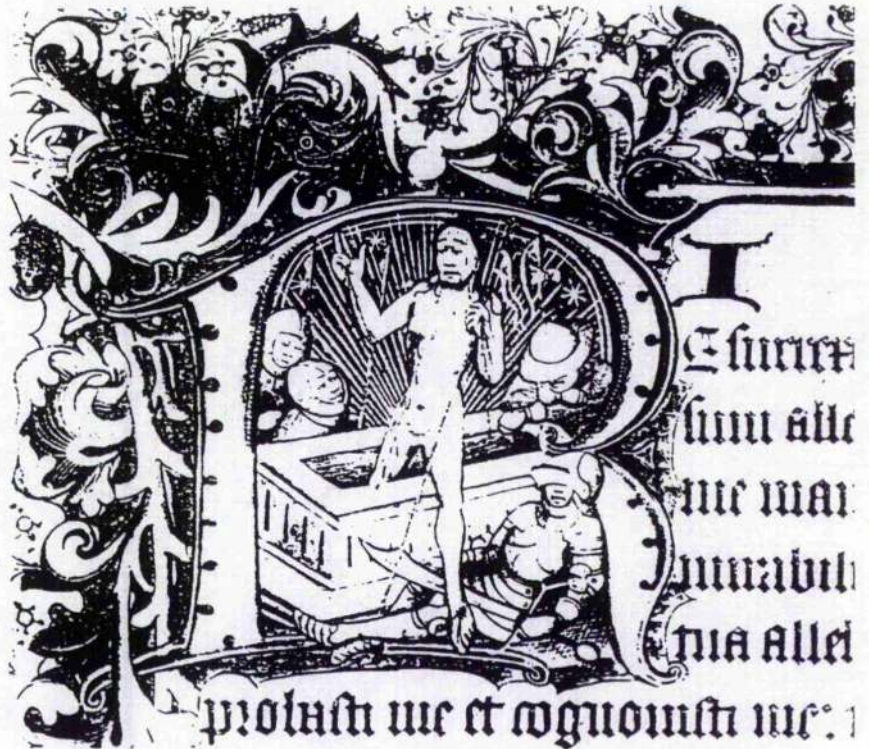 R I
Esurrex
sum alle
me man
mirabili
tua allel
probasti me et cognouisti me: